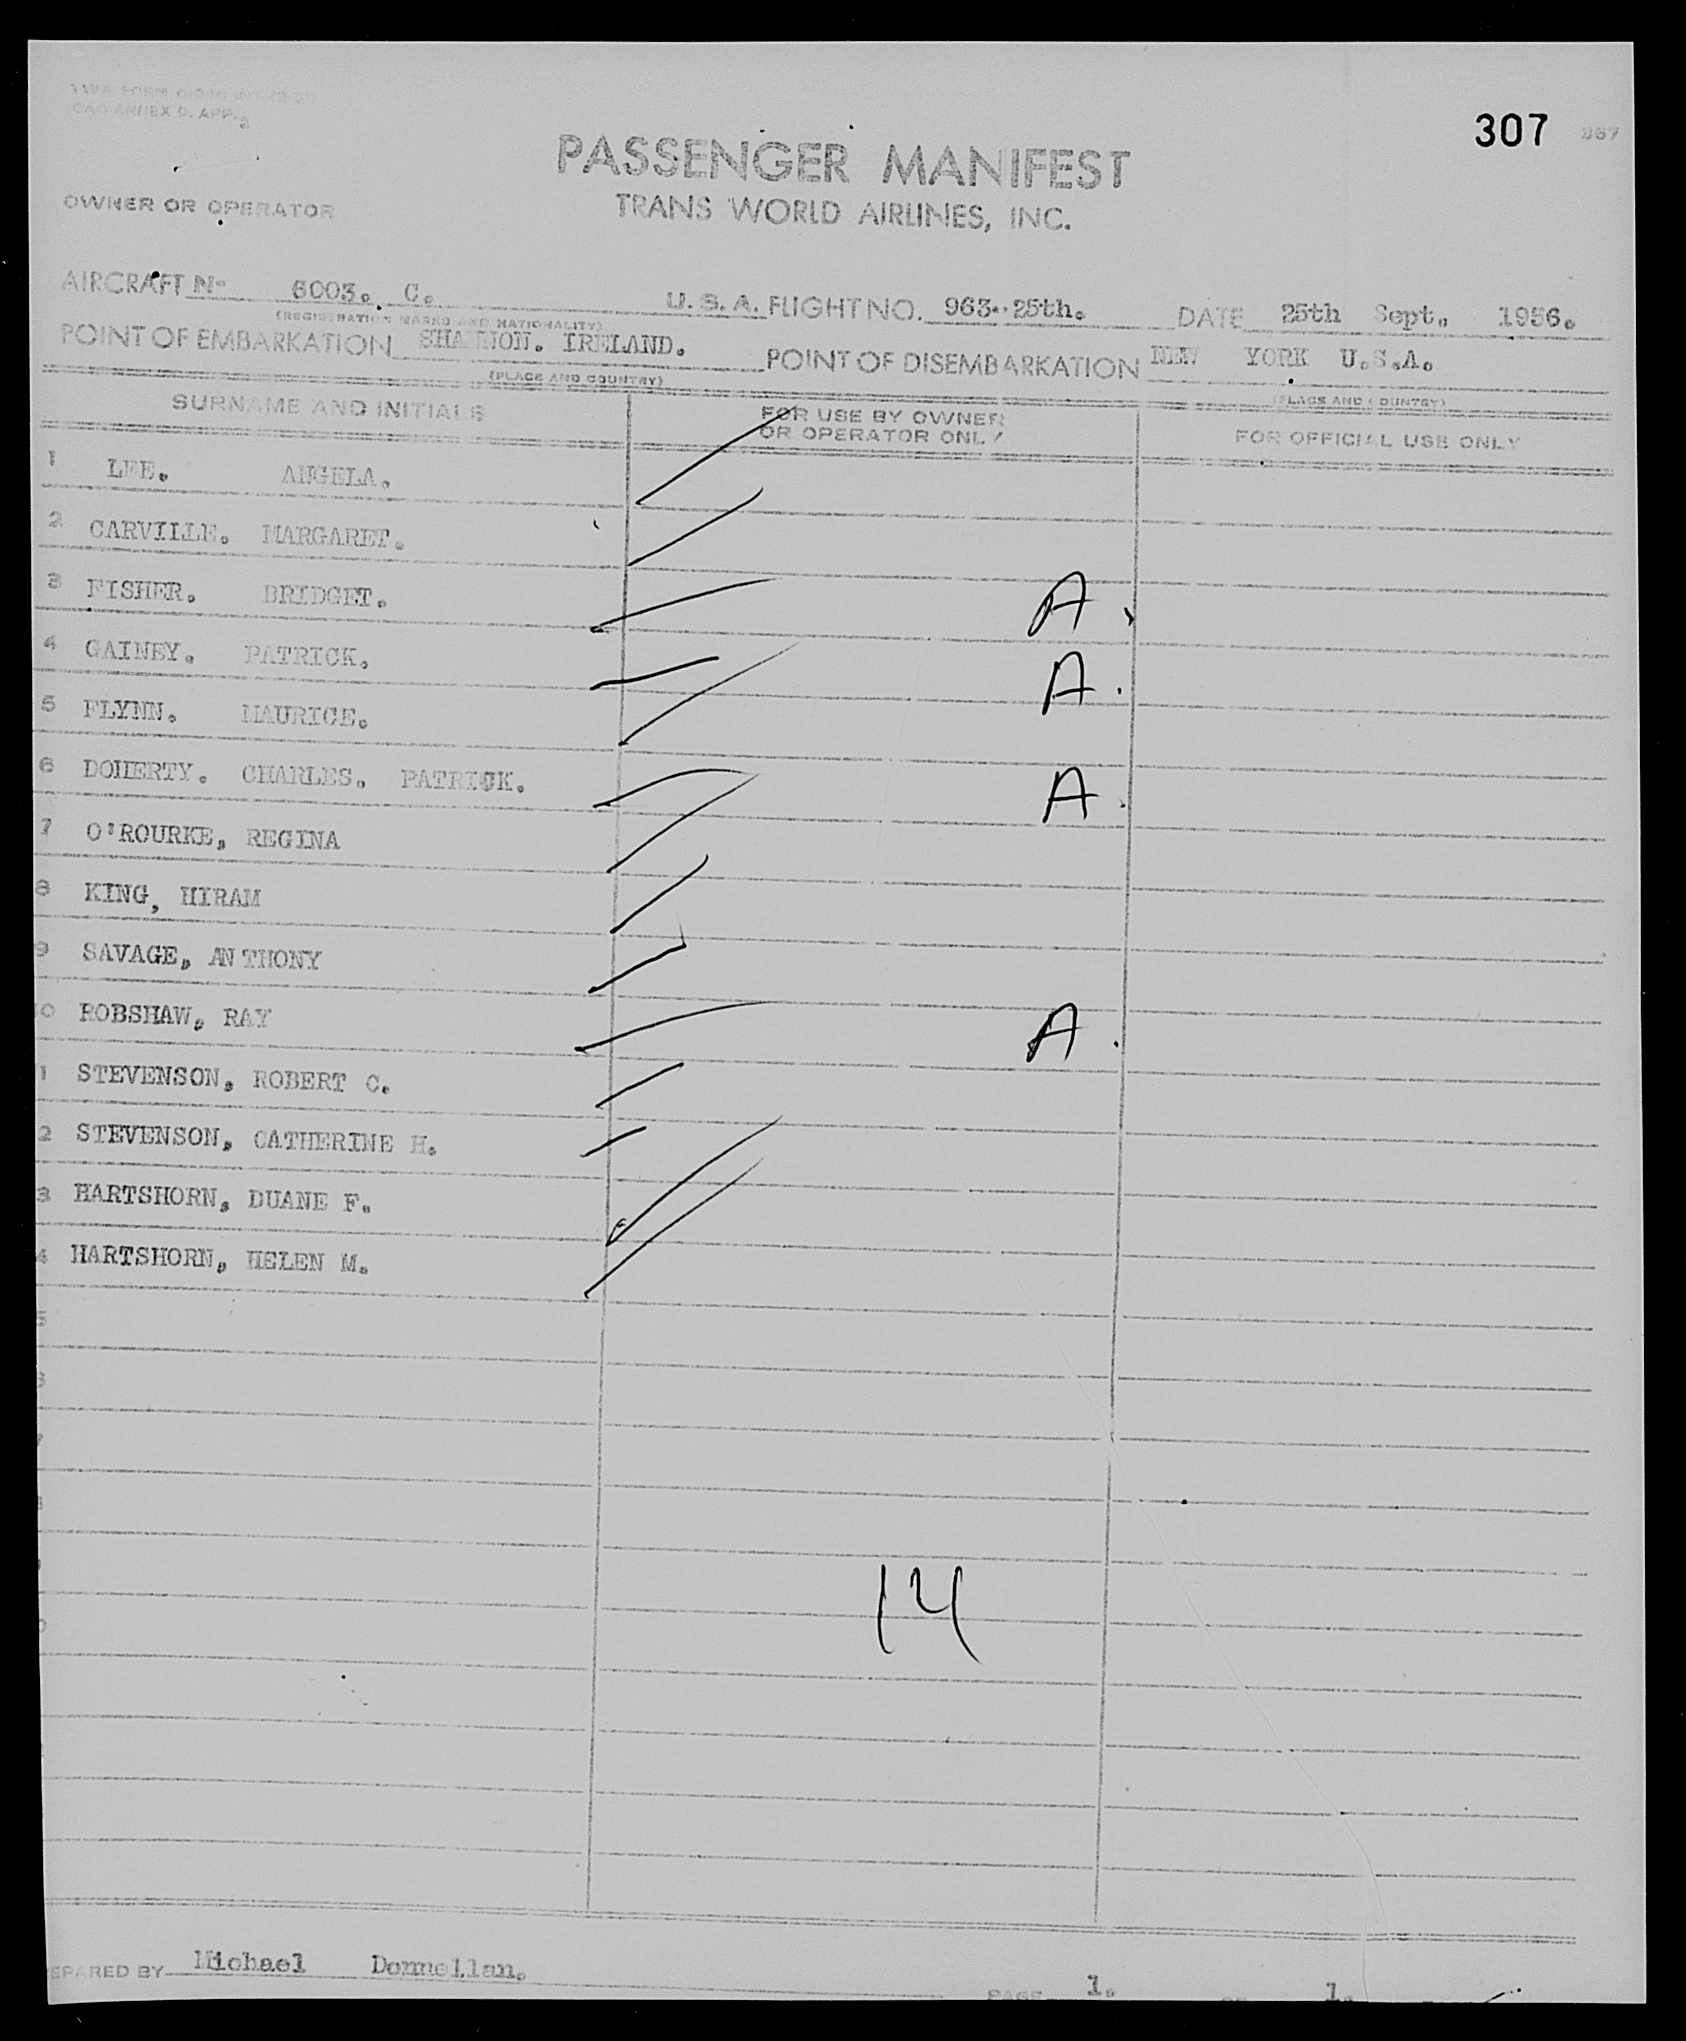 CAO ANNEX 9. APP. 2
307 267
PASSENGER MANIFEST
OWNER OR OPERATOR TRANS WORLD AIRLINES, INC.
AIRCRAFT N- 6003. C. U. S. A. FLIGHT NO. 963.-25th. DATE 25th Sept. 1956.
(REGISTRATION MARKS AND NATIONALITY)
POINT OF EMBARKATION SHANNON. IRELAND. POINT OF DISEMBARKATION NEW YORK U.S.A.
(PLACE AND COUNTRY) (PLACE AND COUNTRY)
SURNAME AND INITIALS FOR USE BY OWNER OR OPERATOR ONLY FOR OFFICIAL USE ONLY
1 LEE. ANGELA.
2 CARVILLE. MARGARET.
3 FISHER. BRIDGET. A.
4 GAINEY. PATRICK. A.
5 FLYNN. MAURICE.
6 DOHERTY. CHARLES. PATRICK. A.
7 O'ROURKE, REGINA
8 KING, HIRAM
9 SAVAGE, ANTHONY
10 ROBSHAW, RAY A.
1 STEVENSON, ROBERT C.
2 STEVENSON, CATHERINE H.
3 HARTSHORN, DUANE F.
4 HARTSHORN, HELEN M.
5
14
EPARED BY Michael Donnellan.
PAGE 1. OF 1.